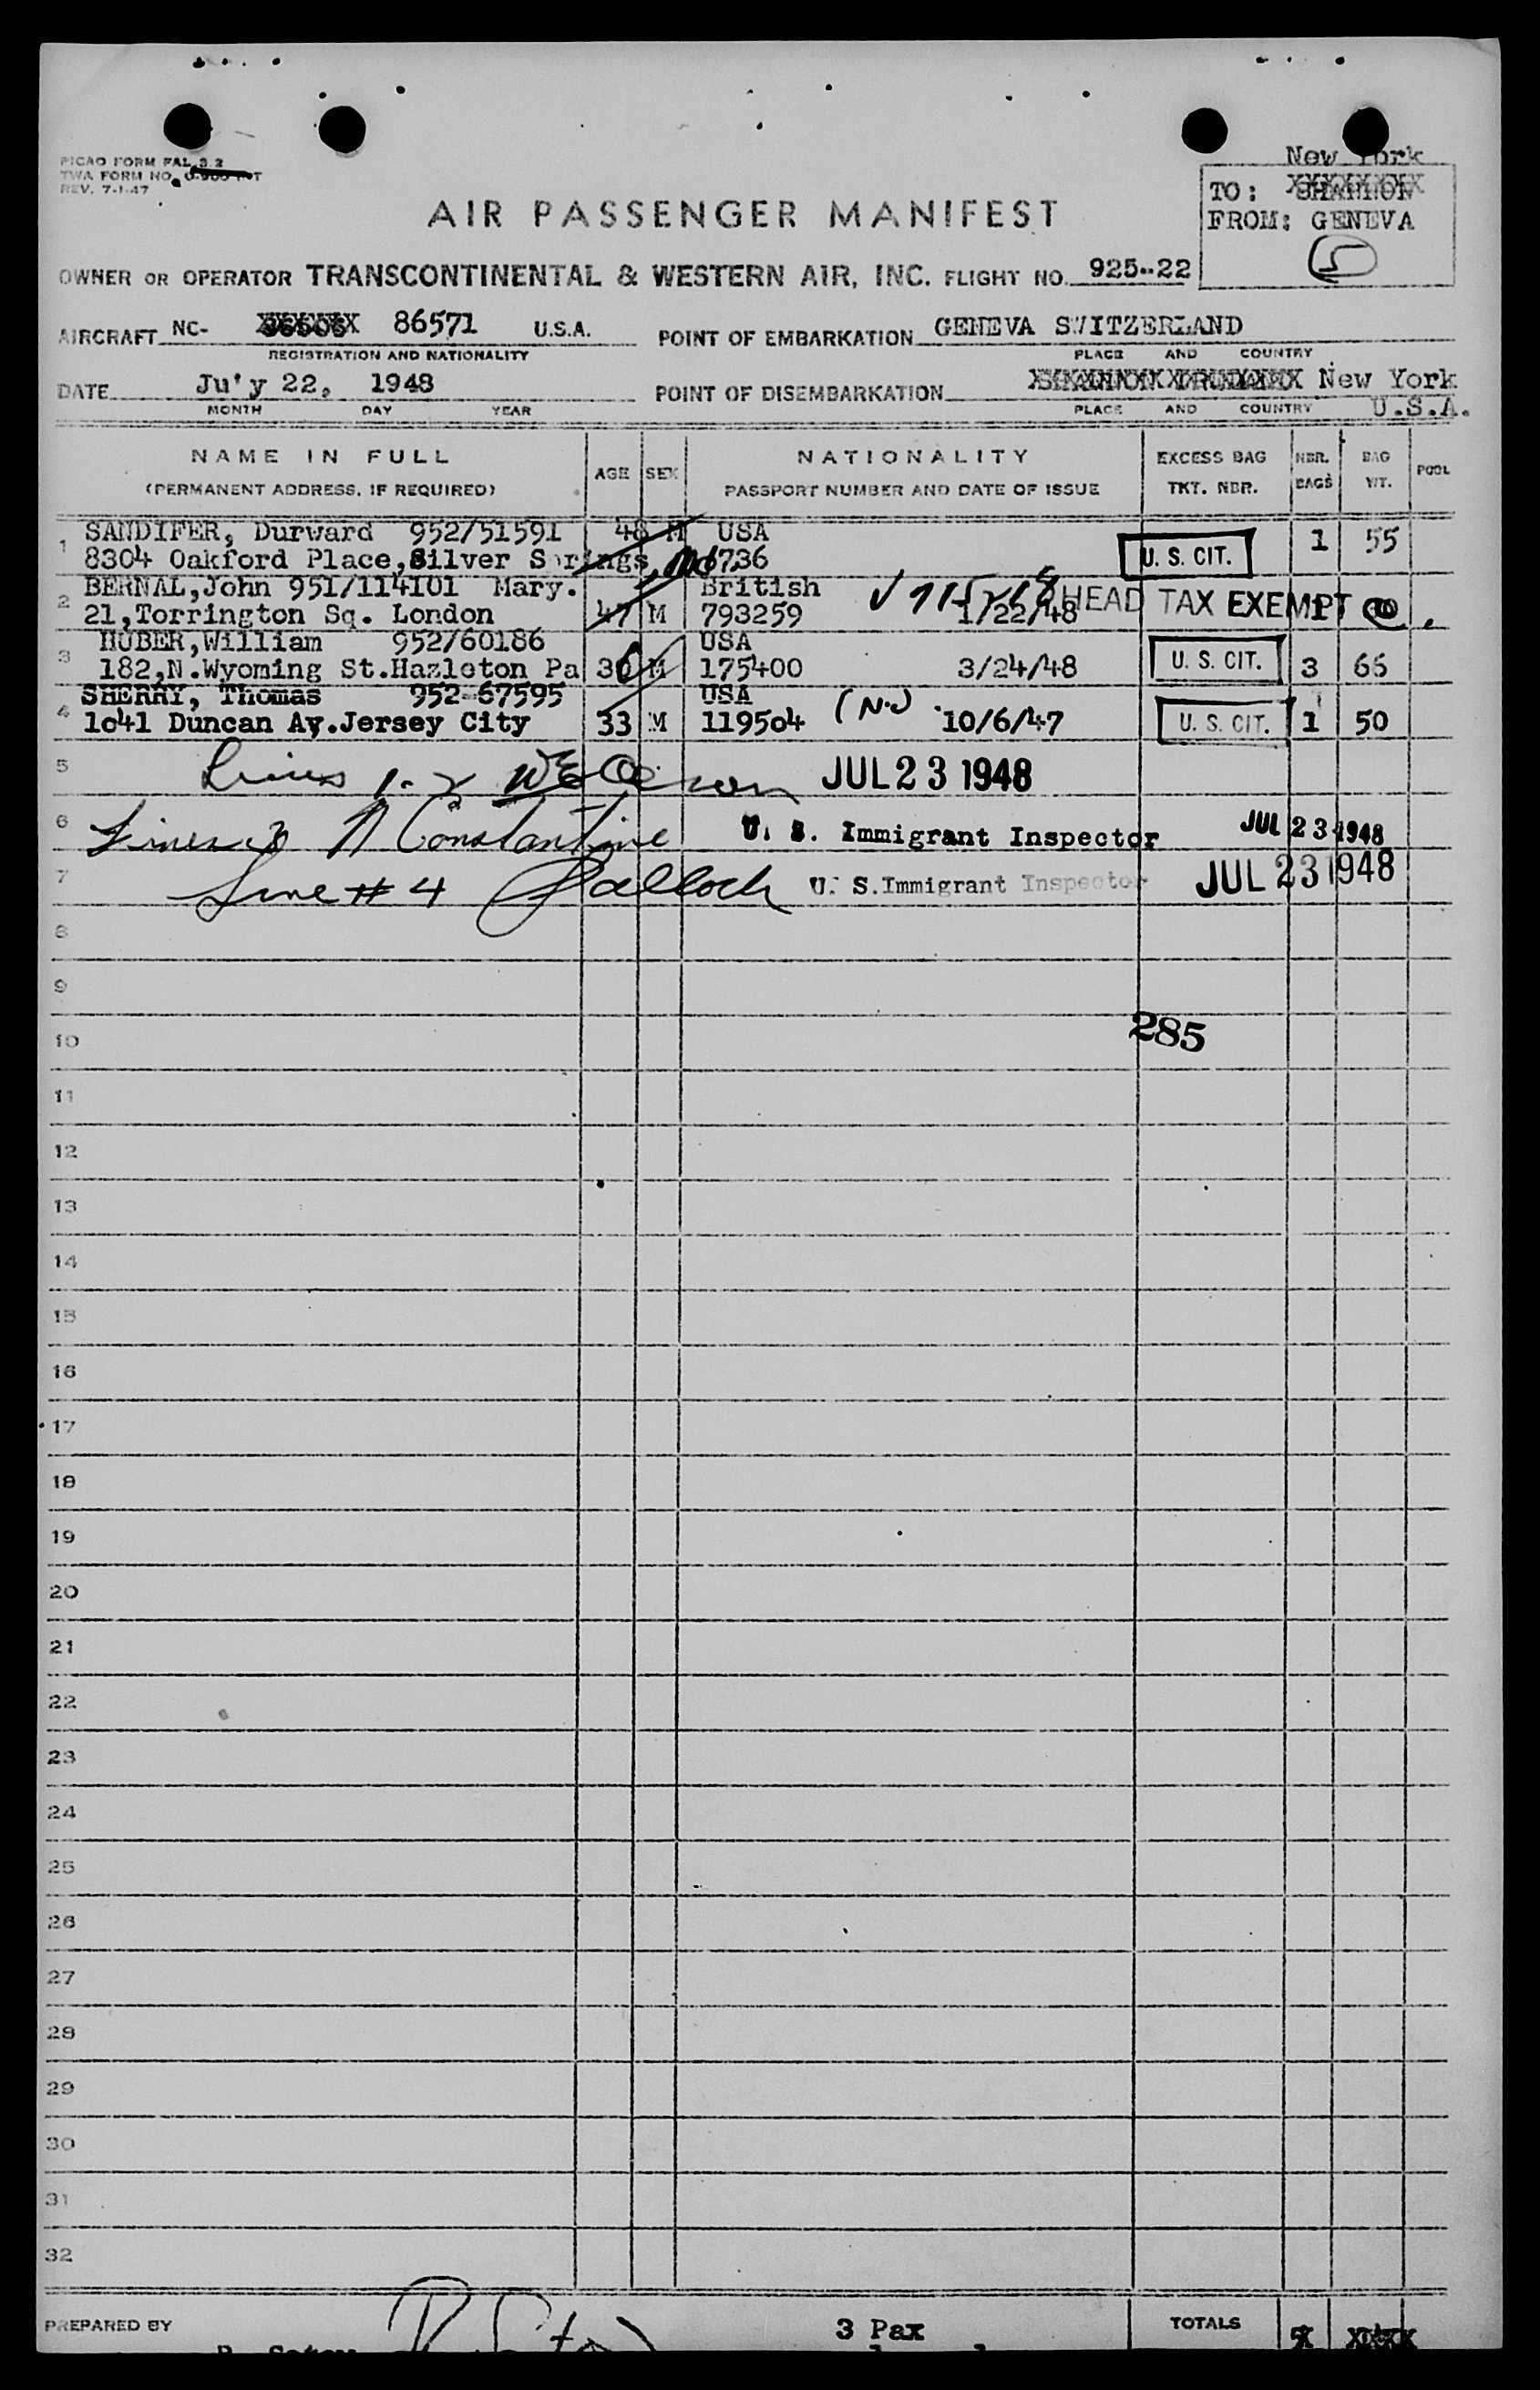 PICAO FORM FAL 3.2
TWA FORM NO.
REV. 7-1-47
New York
TO: SHANNON
FROM: GENEVA
5
AIR PASSENGER MANIFEST
OWNER OR OPERATOR TRANSCONTINENTAL & WESTERN AIR, INC. FLIGHT NO. 925-22
AIRCRAFT NC- 86571 U.S.A. POINT OF EMBARKATION GENEVA SWITZERLAND
REGISTRATION AND NATIONALITY PLACE AND COUNTRY
DATE Ju'y 22, 1948 POINT OF DISEMBARKATION New York
MONTH DAY YEAR PLACE AND COUNTRY U.S.A.
NAME IN FULL AGE SEX NATIONALITY EXCESS BAG NBR. BAG POOL
(PERMANENT ADDRESS, IF REQUIRED) PASSPORT NUMBER AND DATE OF ISSUE TKT. NBR. BAGS WT.
1 SANDIFER, Durward 952/51591 48 M USA U. S. CIT. 1 55
8304 Oakford Place,Silver Springs, Md. 6736
2 BERNAL,John 951/114101 Mary. British
21,Torrington Sq. London 47 M 793259 1/22/48 HEAD TAX EXEMPT 1
3 HUBER,William 952/60186 USA
182,N.Wyoming St.Hazleton Pa 30 M 175400 3/24/48 U. S. CIT. 3 66
4 SHERRY, Thomas 952-67595 USA
1o41 Duncan Av.Jersey City 33 M 1195o4 (N.J) 10/6/47 U. S. CIT. 1 50
5 Lines 1-2 JUL 23 1948
6 Lines N Constantine U. S. Immigrant Inspector JUL 23 1948
7 Line # 4 U. S. Immigrant Inspector JUL 23 1948
8
9
285
10
11
12
13
14
15
16
17
18
19
20
21
22
23
24
25
26
27
28
29
30
31
32
PREPARED BY 3 Pax TOTALS